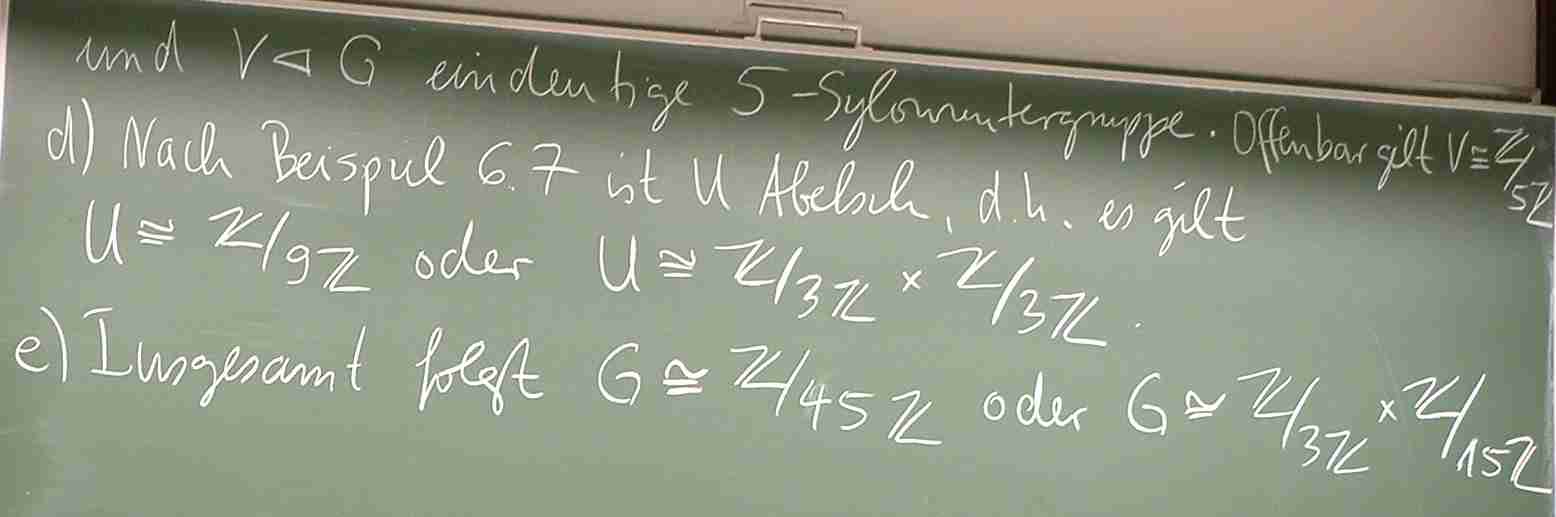 und V ⊲ G eindeutige 5-Sylowuntergruppe. Offenbar gilt V ≅ ℤ/5ℤ
d) Nach Beispiel 6.7 ist U Abelsch, d.h. es gilt
U ≅ ℤ/9ℤ oder U ≅ ℤ/3ℤ × ℤ/3ℤ.
e) Insgesamt folgt G ≅ ℤ/45ℤ oder G ≅ ℤ/3ℤ × ℤ/15ℤ